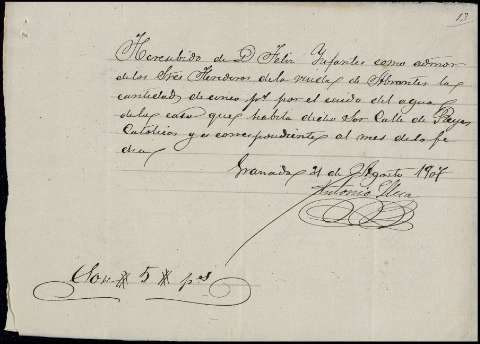 13
He recibido de D Felix Infantes como admor
de los Sres Herederos de la viuda de Abrantes la
cantidad de cinco pts por el cuido del agua
de la casa que habita dicho Sor Calle de Reyes
Católicos y a correspondiente al mes de la fe
cha
Granada 31 de Agosto 1907
Antonio
Son # 5 # pts